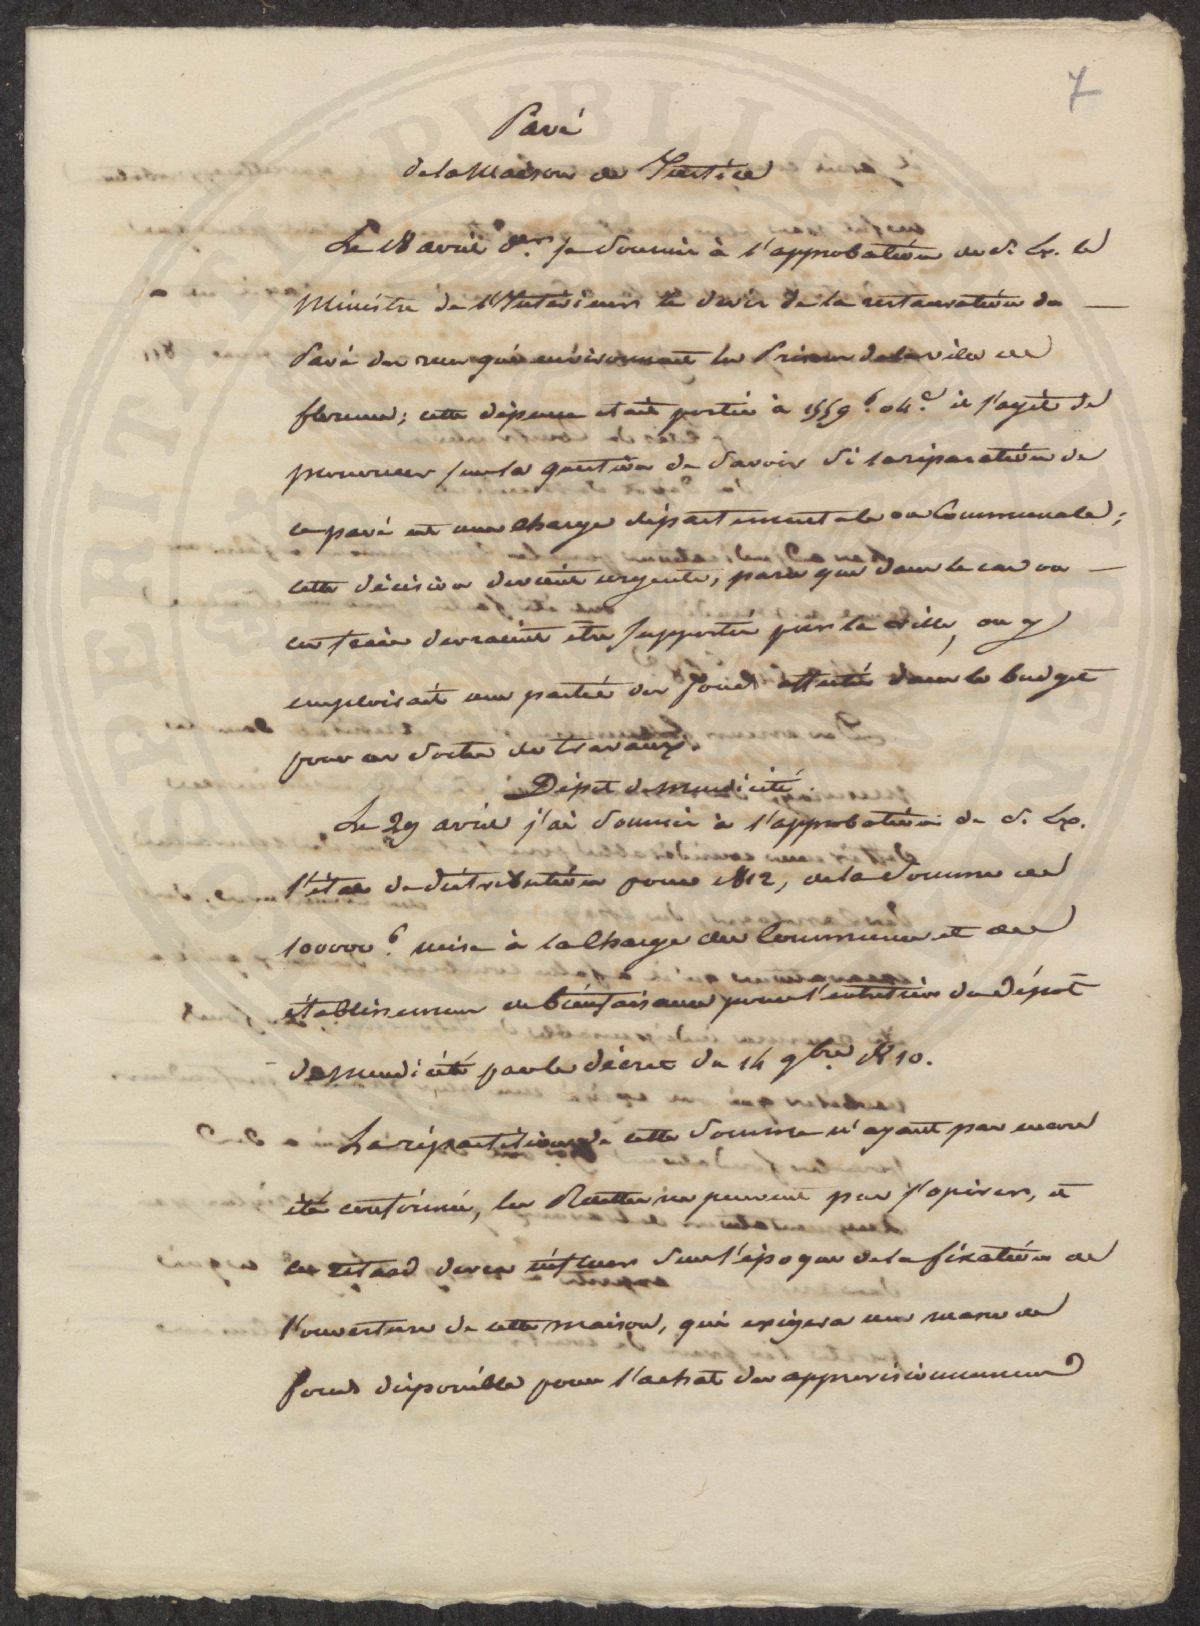 7
Pavé
de la Maison de Justice
Le 18 avril der. je soumis à l'approbation de S. Ex. le
Ministre de l'Intérieur le devis de la restauration du
Pavé des rues qui environnent les Prisons de la ville de
florence; cette dépense etait portée à 1559 f. 04 c. il s'agit de
prononcer sur la question de savoir si la réparation de
ce pavé est une charge départementale ou Communale;
cette décision devient urgente, parce que dans le cas ou
ces frais devraient être supportés par la ville, on y
emploirait une partie des fonds affectés dans le budget
pour ces sortes de travaux.
Dépôt de mendicité.
Le 29 avril j'ai soumis à l'approbation de S. Ex.
l'état de distribution pour 1812, de la somme de
100000 f. mise à la charge des Communes et des
établissemens de bienfaisance pour l'entretien du dépôt
de mendicité par le décret du 14 9bre 1810.
La répartition de cette somme n'ayant pas encore
été confirmée, les Recettes ne peuvent pas s'opérer, et
ce retard devra influer sur l'époque de la fixation de
l'ouverture de cette maison, qui exigera une masse de
fonds disponible pour l'achat des approvisionnemens